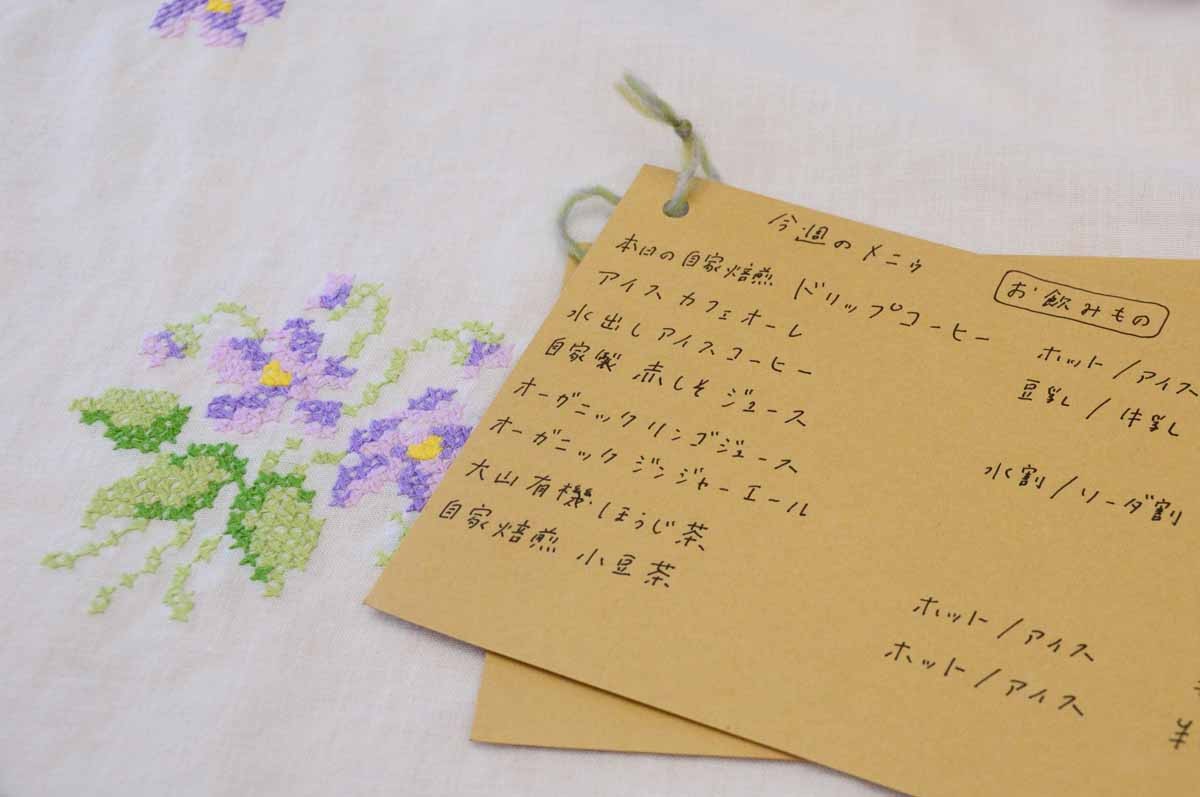 今週のメニウ
お飲みもの
本日の自家焙煎 ドリップコーヒー ホット/アイス
アイスカフェオーレ 豆乳/牛乳
水出しアイスコーヒー
自家製 赤しそジュース 水割/ソーダ割
オーガニックリンゴジュース
オーガニック ジンジャーエール
大山有機ほうじ茶 ホット/アイス
自家焙煎 小豆茶 ホット/アイス ¥